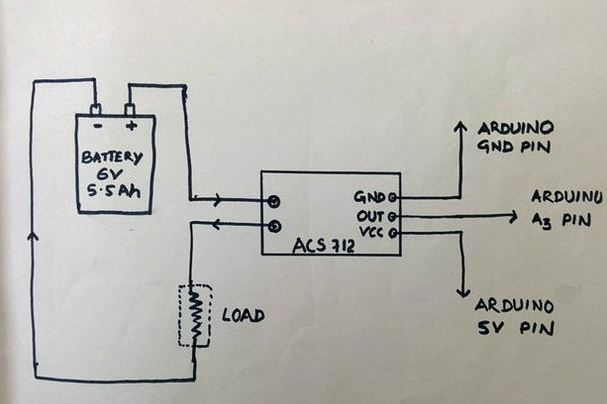 - +
BATTERY
6V
5.5Ah
GND
OUT
VCC
ACS 712
ARDUINO
GND PIN
ARDUINO
A3 PIN
ARDUINO
5V PIN
LOAD